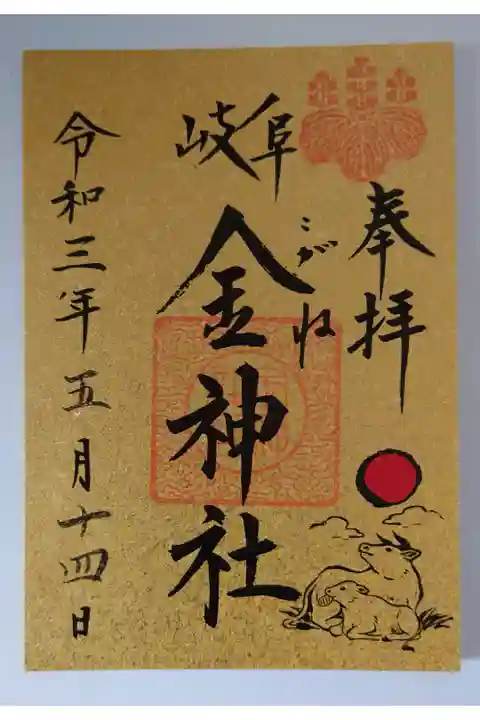 奉拝
岐阜
金神社
こがね
令和三年五月十四日